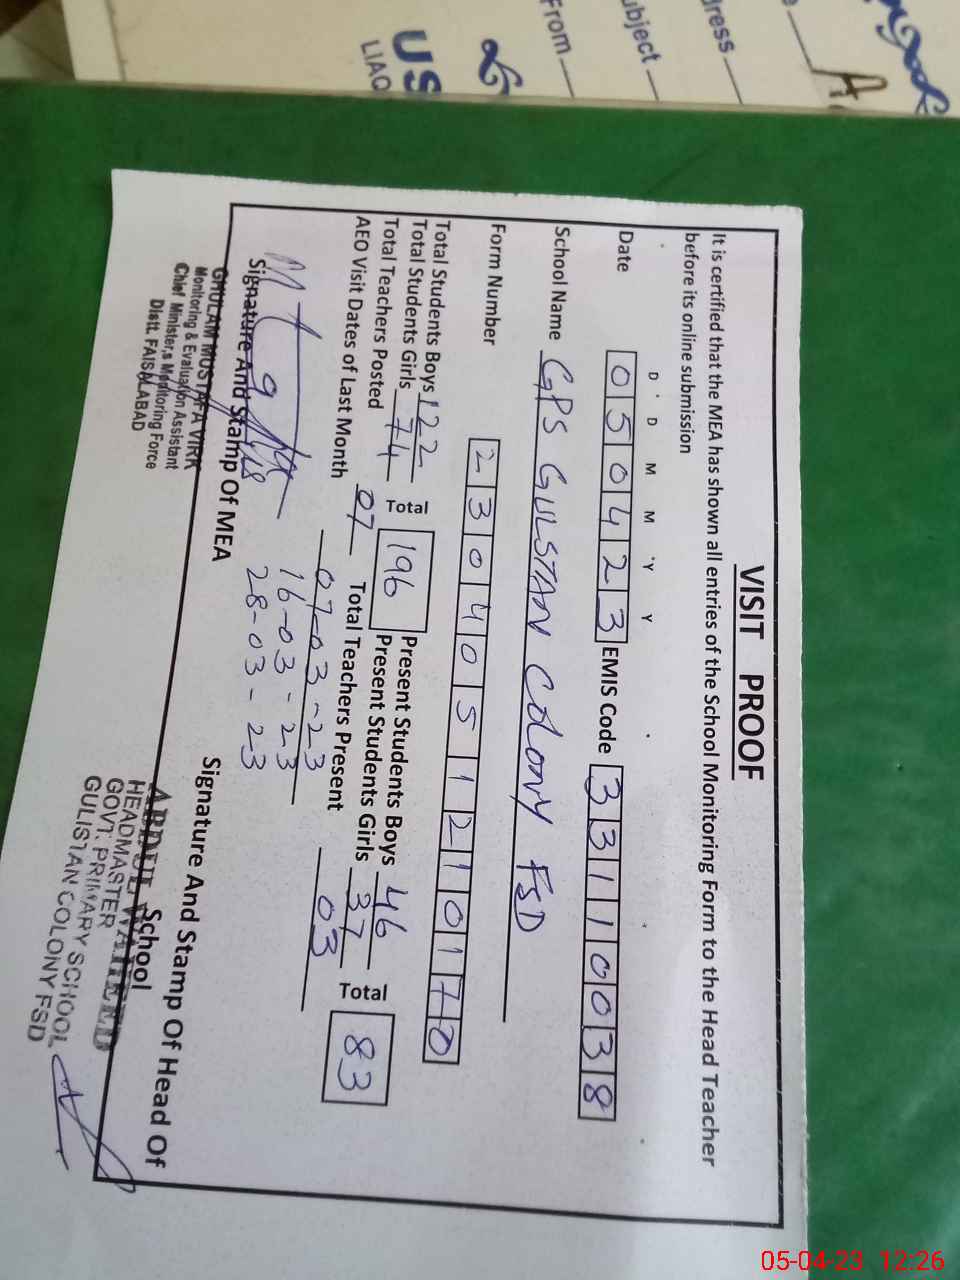 VISIT PROOF
It is certified that the MEA has shown all entries of the School Monitoring Form to the Head Teacher
before its online submission
D D M M Y Y
Date 050423 EMIS Code 33110038
School Name GPS GULSTAN COLONY FSD
Form Number 2304051210170
Total Students Boys 122
Total Students Girls 74
Total 196
Present Students Boys 46
Present Students Girls 37
Total 83
Total Teachers Posted 07
Total Teachers Present 03
AEO Visit Dates of Last Month 07-03-23
16-03-23
28-03-23
Signature And Stamp Of MEA
GHULAM MUSTAFA VIRK
Monitoring & Evaluation Assistant
Chief Minister,s Monitoring Force
Distt. FAISALABAD
Signature And Stamp Of Head Of
School
ABDUL WAHEED
HEADMASTER
GOVT. PRIMARY SCHOOL
GULISTAN COLONY FSD
US
LIAQ
From
ubject
ress
05-04-23 12:26